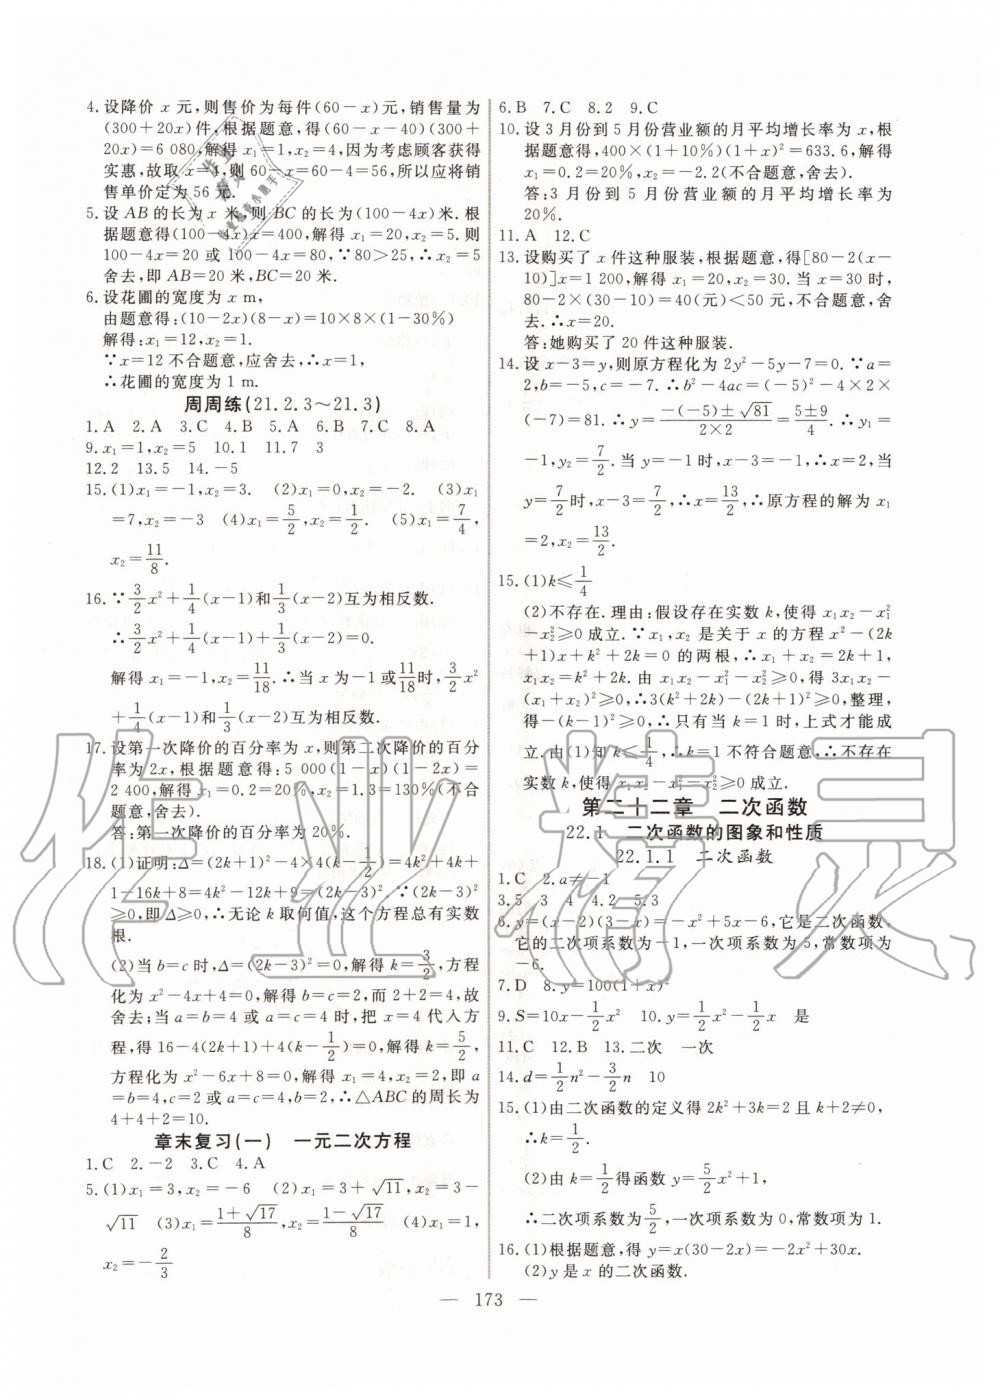 4.设降价 x 元,则售价为每件(60－x)元,销售量为
(300＋20x)件,根据题意,得(60－x－40)(300＋
20x)＝6 080,解得 x₁＝1,x₂＝4,因为考虑顾客获得
实惠,故取 x＝4,则 60－x＝60－4＝56,所以应将销
售单价定为 56 元.
5.设 AB 的长为 x 米,则 BC 的长为(100－4x)米.根
据题意得(100－4x)x＝400,解得 x₁＝20,x₂＝5.则
100－4x＝20 或 100－4x＝80.∵80＞25,∴x₂＝5
舍去,即 AB＝20 米,BC＝20 米.
6.设花圃的宽度为 x m,
由题意得:(10－2x)(8－x)＝10×8×(1－40%)
解得:x₁＝12,x₂＝1.
∵x＝12 不合题意,应舍去,∴x＝1,
∴花圃的宽度为 1 m.
周周练(21.2.3～21.3)
1.A 2.A 3.C 4.B 5.A 6.B 7.C 8.A
9.x₁＝1,x₂＝5 10.1 11.7 3
12.2 13.5 14.－5
15.(1)x₁＝－1,x₂＝3. (2)x₁＝0,x₂＝－2. (3)x₁
＝7,x₂＝－3 (4)x₁＝5/2,x₂＝1/2. (5)x₁＝7/4,
x₂＝11/8.
16.∵3/2x²＋1/4(x－1)和1/3(x－2)互为相反数.
∴3/2x²＋1/4(x－1)＋1/3(x－2)＝0.
解得 x₁＝－1,x₂＝11/18.∴当 x 为－1 或11/18时,3/2x²
＋1/4(x－1)和1/3(x－2)互为相反数.
17.设第一次降价的百分率为 x,则第二次降价的百分
率为 2x,根据题意得:5 000(1－x)(1－2x)＝
2 400,解得 x₁＝0.2＝20%,x₂＝1.3＝130%(不合
题意,舍去).
答:第一次降价的百分率为 20%.
18.(1)证明:Δ＝(2k＋1)²－4×4(k－1/2)＝4k²＋4k＋
1－16k＋8＝4k²－12k＋9＝(2k－3)² ∵(2k－3)²
≥0,即 Δ≥0,∴无论 k 取何值,这个方程总有实数
根.
(2)当 b＝c 时,Δ＝(2k－3)²＝0,解得 k＝3/2,方程
化为 x²－4x＋4＝0,解得 b＝c＝2,而 2＋2＝4,故
舍去;当 a＝b＝4 或 a＝c＝4 时,把 x＝4 代入方
程,得 16－4(2k＋1)＋4(k－1/2)＝0,解得 k＝5/2,
方程化为 x²－6x＋8＝0,解得 x₁＝4,x₂＝2,即 a
＝b＝4,c＝2 或 a＝c＝4,b＝2,∴△ABC 的周长为
4＋4＋2＝10.
章末复习(一) 一元二次方程
1.C 2.－2 3.C 4.A
5.(1)x₁＝3,x₂＝－6 (2)x₁＝3＋√11,x₂＝3－
√11 (3)x₁＝(1＋√17)/8,x₂＝(1－√17)/8 (4)x₁＝1,
x₂＝－2/3
6.B 7.C 8.2 9.C
10.设 3 月份到 5 月份营业额的月平均增长率为 x,根
据题意得,400×(1＋10%)(1＋x)²＝633.6,解得
x₁＝0.2＝20%,x₂＝－2.2(不合题意,舍去).
答:3 月份到 5 月份营业额的月平均增长率为
20%.
11.A 12.C
13.设购买了 x 件这种服装,根据题意,得[80－2(x－
10)]x＝1 200,解得 x₁＝20,x₂＝30. 当 x＝30 时,
80－2×(30－10)＝40(元)＜50 元,不合题意,舍
去.∴x＝20.
答:她购买了 20 件这种服装.
14.设 x－3＝y,则原方程化为 2y²－5y－7＝0.∵a＝
2,b＝－5,c＝－7.∴b²－4ac＝(－5)²－4×2×
(－7)＝81.∴y＝(－(－5)±√81)/(2×2)＝(5±9)/4.∴y₁＝
－1,y₂＝7/2.当 y＝－1 时,x－3＝－1,∴x＝2;当
y＝7/2时,x－3＝7/2,∴x＝13/2,∴原方程的解为 x₁
＝2,x₂＝13/2.
15.(1)k≤1/4
(2)不存在.理由:假设存在实数 k,使得 x₁x₂－x₁²
－x₂²≥0 成立.∵x₁,x₂ 是关于 x 的方程 x²－(2k
＋1)x＋k²＋2k＝0 的两根,∴x₁＋x₂＝2k＋1,
x₁x₂＝k²＋2k.由 x₁x₂－x₁²－x₂²≥0,得 3x₁x₂－
(x₁＋x₂)²≥0,∴3(k²＋2k)－(2k＋1)²≥0,整理,
得－(k－1)²≥0,∴只有当 k＝1 时,上式才能成
立.由(1)知 k≤1/4,∴k＝1 不符合题意,∴不存在
实数 k,使得 x₁x₂－x₁²－x₂²≥0 成立.
第二十二章 二次函数
22.1 二次函数的图象和性质
22.1.1 二次函数
1.C 2.a≠－1
3.5 3 4 4.2 5.3
6.y＝(x－2)(3－x)＝－x²＋5x－6,它是二次函数,
它的二次项系数为－1,一次项系数为 5,常数项为
－6.
7.D 8.y＝100(1＋x)²
9.S＝10x－1/2x² 10.y＝1/2x－1/2x² 是
11.C 12.B 13.二次 一次
14.d＝1/2n²－3/2n 10
15.(1)由二次函数的定义得 2k²＋3k＝2 且 k≠0,
∴k＝1/2.
(2)由 k＝1/2得函数 y＝5/2x²＋1,
∴二次项系数为5/2,一次项系数为 0,常数项为 1.
16.(1)根据题意,得 y＝x(30－2x)＝－2x²＋30x.
(2)y 是 x 的二次函数.
— 173 —
作业精灵